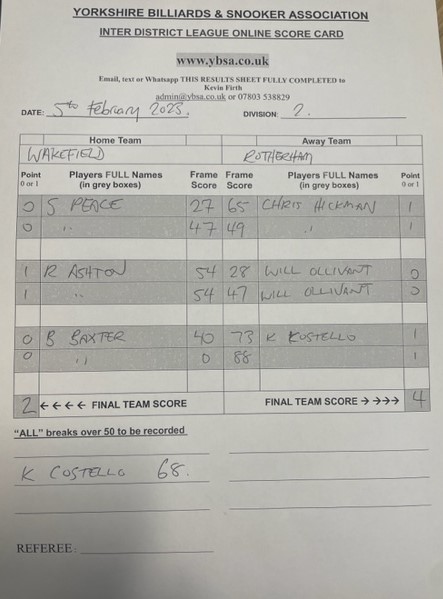 YORKSHIRE BILLIARDS & SNOOKER ASSOCIATION
INTER DISTRICT LEAGUE ONLINE SCORE CARD
www.ybsa.co.uk
Email, text or Whatsapp THIS RESULTS SHEET FULLY COMPLETED to
Kevin Firth
admin@ybsa.co.uk or 07803 538829
DATE: 5th February 2023. DIVISION: 2.
Home Team Away Team
WAKEFIELD ROTHERHAM
Point 0 or 1 Players FULL Names (in grey boxes) Frame Score Frame Score Players FULL Names (in grey boxes) Point 0 or 1
0 S PEACE 27 65 CHRIS HICKMAN 1
0 " 47 49 " 1
1 R ASHTON 54 28 WILL OLLIVANT 0
1 " 54 47 WILL OLLIVANT 0
0 B BAXTER 40 73 K COSTELLO 1
0 " 0 88 1
2 ←←←← FINAL TEAM SCORE FINAL TEAM SCORE →→→→ 4
"ALL" breaks over 50 to be recorded
K COSTELLO 68.
REFEREE: